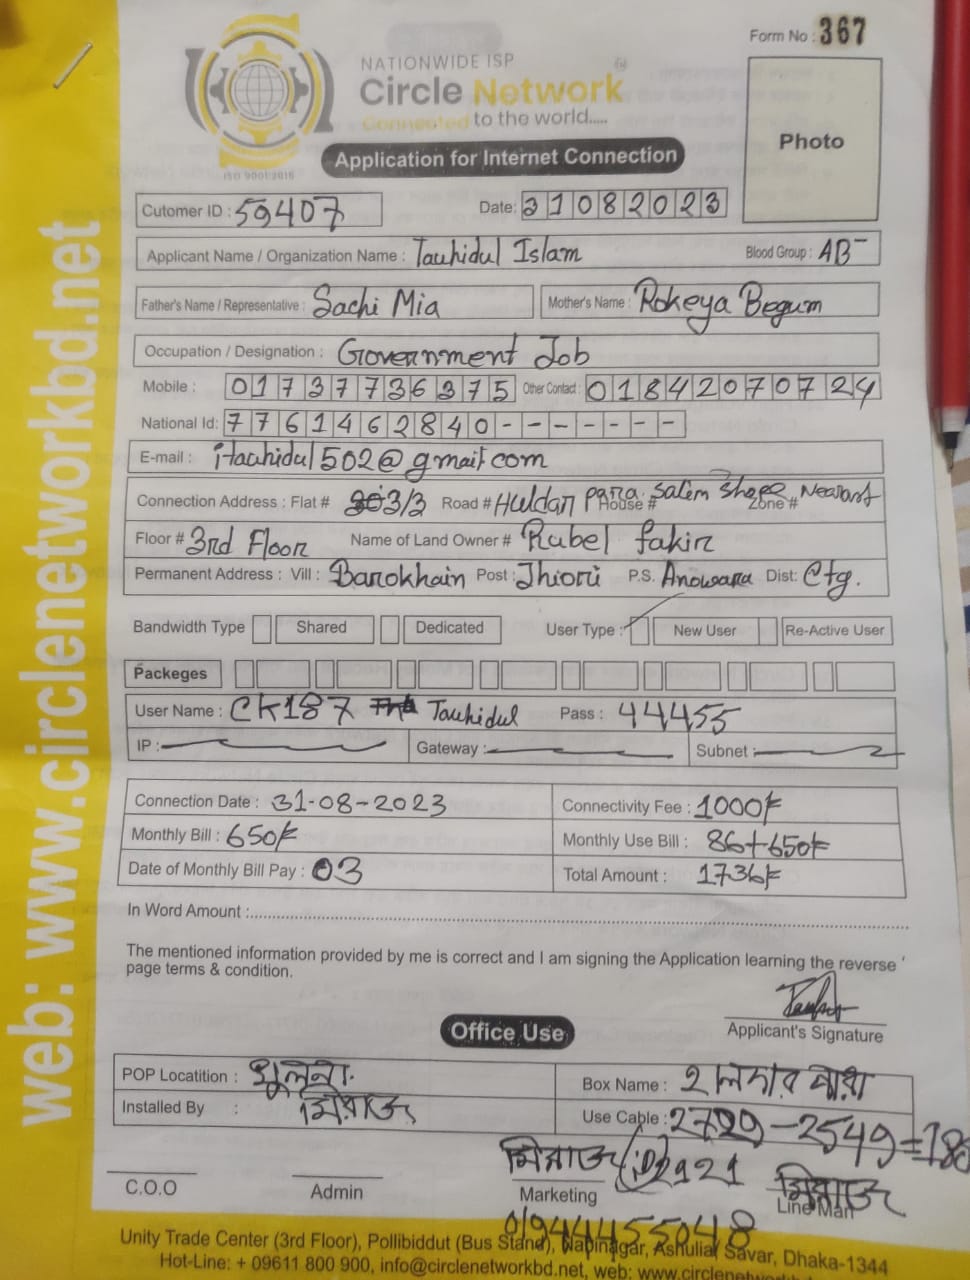 Form No : 367
NATIONWIDE ISP
Circle Network
Connected to the world.....
ISO 9001:2015
Application for Internet Connection
Photo
Cutomer ID : 59407
Date: 31082023
Applicant Name / Organization Name : Tauhidul Islam Blood Group : AB-
Father's Name / Representative : Sachi Mia Mother's Name : Rokeya Begum
Occupation / Designation : Government Job
Mobile : 01737736375 Other Contact : 01842070724
National Id: 7761462840-------
E-mail : itauhidul502@gmail.com
Connection Address : Flat # 303/3 Road # Huldar para House # Salem Shope Zone #
Floor # 3rd Floor Name of Land Owner # Rubel fakir
Permanent Address : Vill : Barokhain Post : Jhiori P.S. Anowara Dist: Ctg.
Bandwidth Type Shared Dedicated User Type : New User Re-Active User
Packeges
User Name : CK187 Tauhidul Pass : 44455
IP : Gateway : Subnet :
Connection Date : 31-08-2023 Connectivity Fee : 1000/=
Monthly Bill : 650/= Monthly Use Bill : 86+650/=
Date of Monthly Bill Pay : 03 Total Amount : 1736/=
In Word Amount :
The mentioned information provided by me is correct and I am signing the Application learning the reverse
page terms & condition.
Applicant's Signature
Office Use
POP Locatition : খুলনা Box Name : হালদার পাড়া
Installed By : মিরাজ Use Cable : 2729-2549=180
মিরাজ ID 2921 মিরাজ
C.O.O Admin Marketing Line Man
01944455048
Unity Trade Center (3rd Floor), Pollibiddut (Bus Stand), Nabinagar, Ashulia, Savar, Dhaka-1344
Hot-Line: + 09611 800 900, info@circlenetworkbd.net, web: www.circlenetworkbd.net
web: www.circlenetworkbd.net